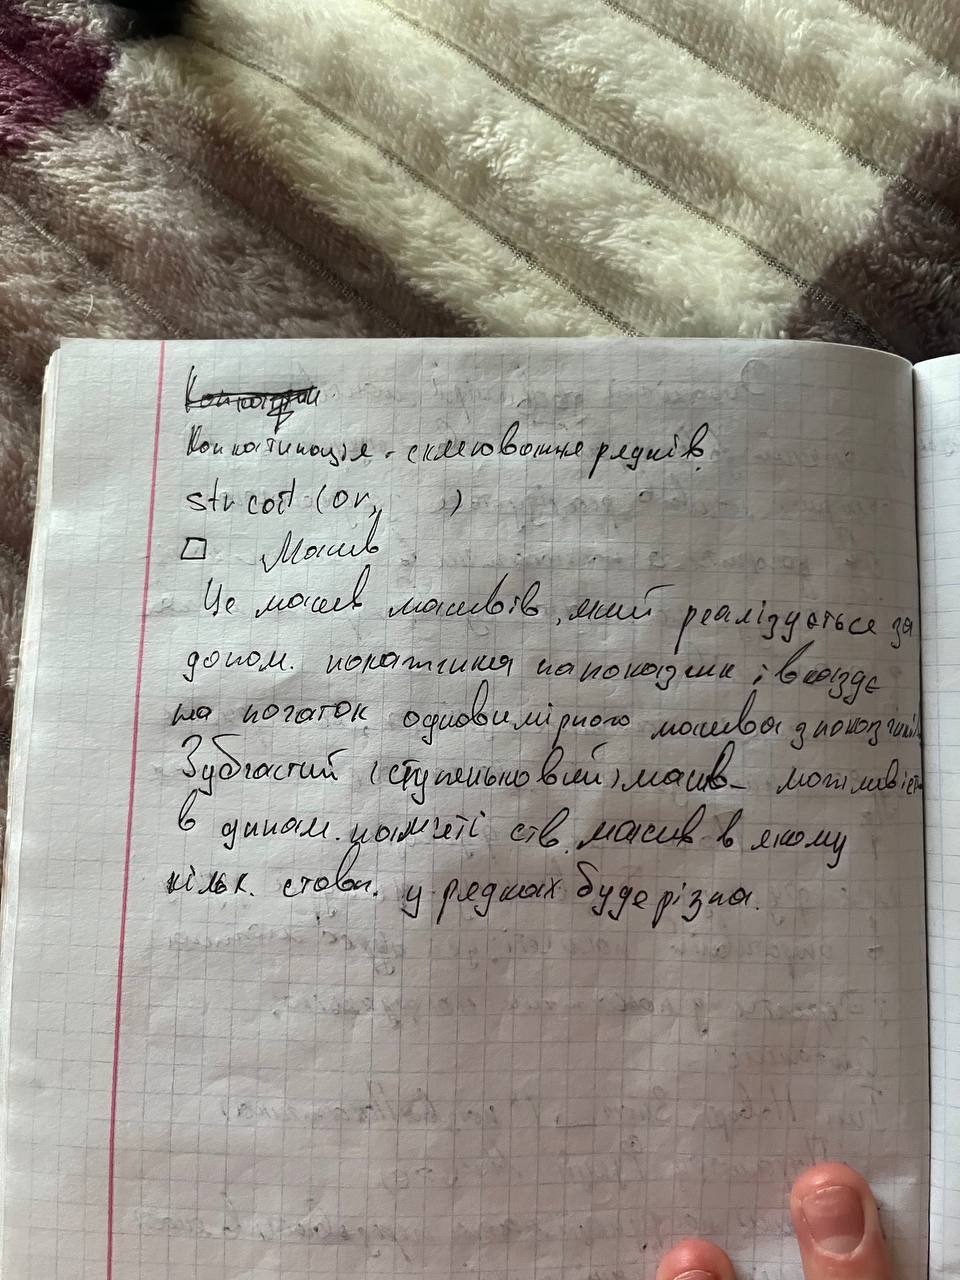 Конкатинація - склеювання рядків.
strcat (or,      )
□ Масив
Це масив масивів, який реалізується за
допом. покажчика на показник і вказує
на початок одновимірного масива з
Зубчастий (ступеньковий) масив - можливість
в динам. пам'яті ств. масив в якому
кільк. стовп. у рядках буде різна.